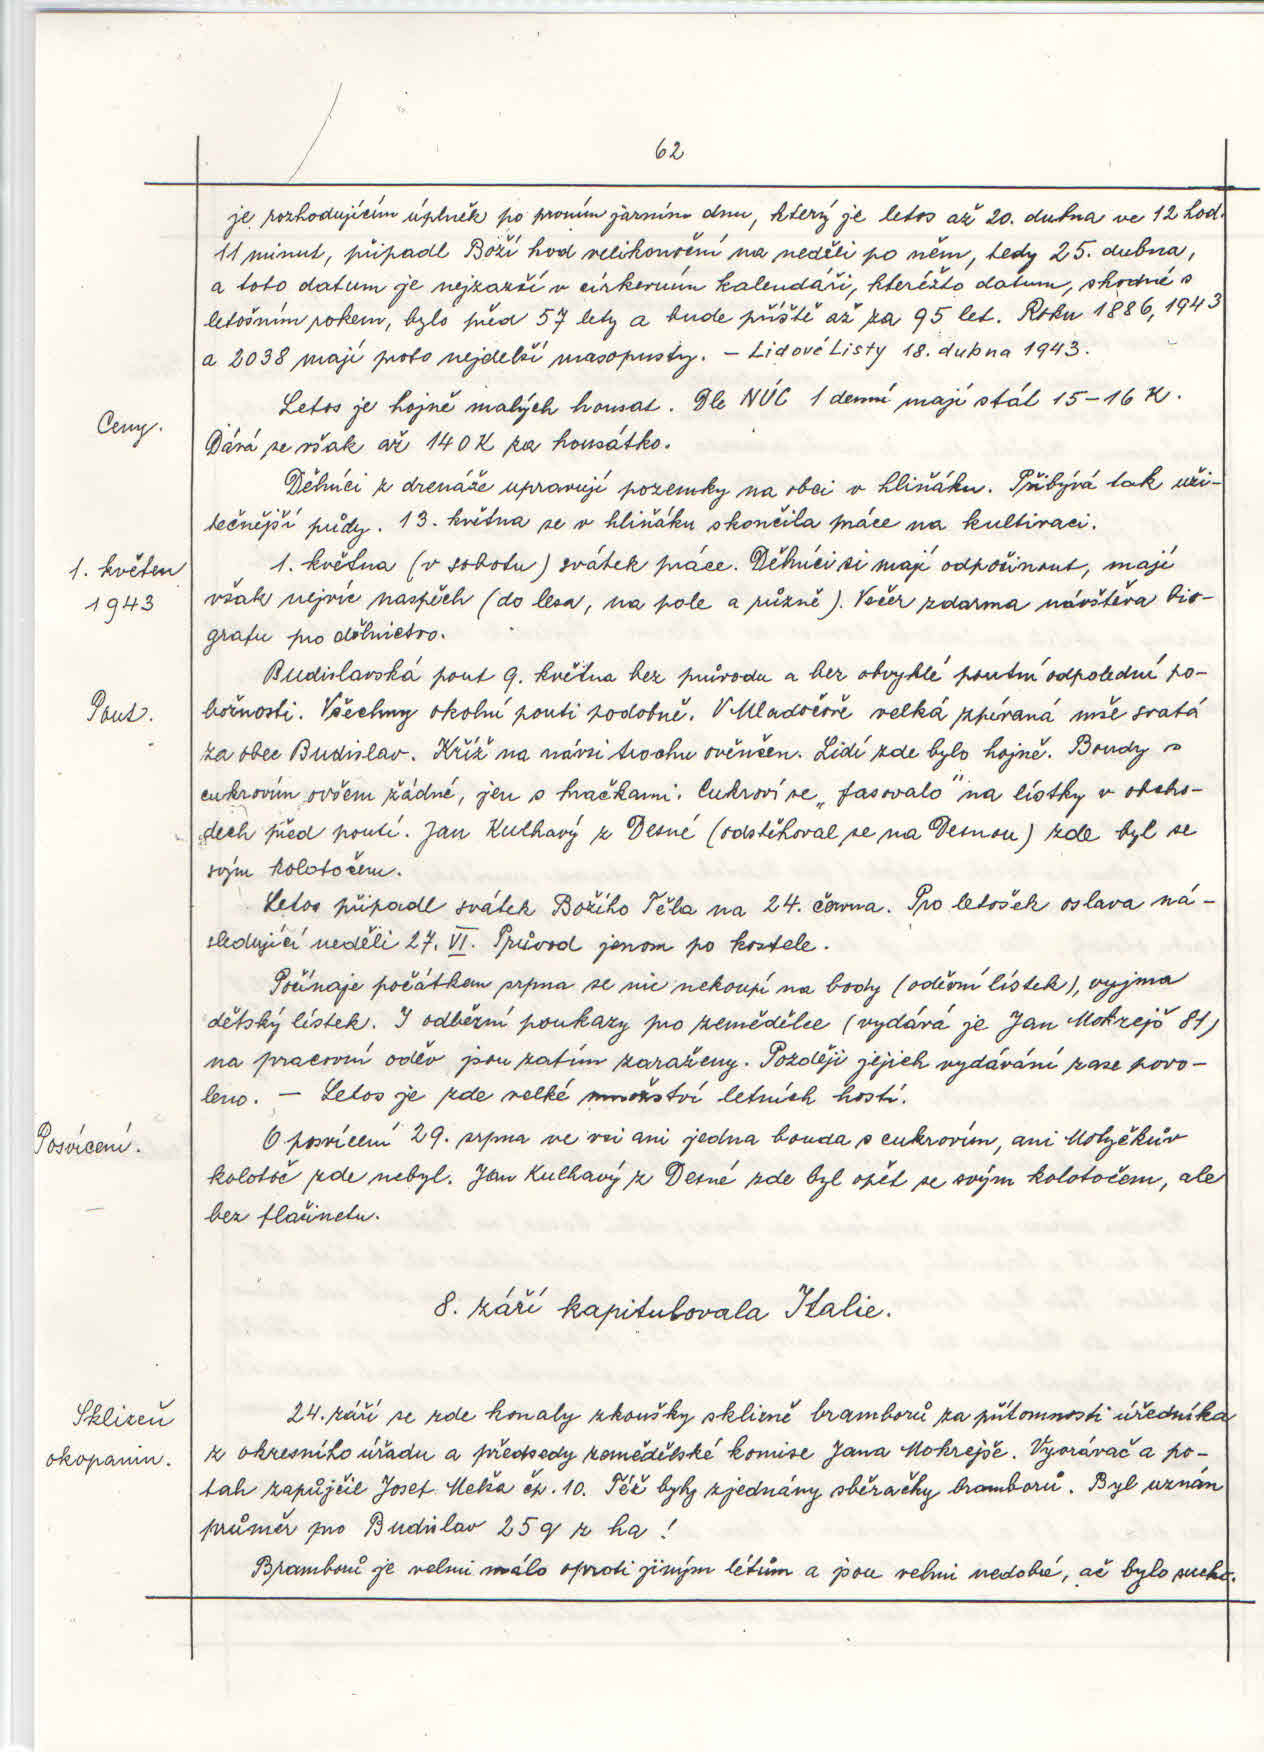 62
je rozhodujícím úplněk po prvním jarním dnu, který je letos až 20. dubna ve 12 hod.
11 minut, připadl Boží hod velikonoční na neděli po něm, tedy 25. dubna,
a toto datum je nejzazší v církevním kalendáři, kteréžto datum, shodné s
letošním rokem, bylo před 57 lety a bude příště až za 95 let. Roku 1886, 1943
a 2038 mají proto nejdelší masopusty. – Lidové Listy 18. dubna 1943.
Ceny.
Letos je hojně malých housat. Dle NÚC 1 denní mají stát 15–16 K.
Dává se však až 140 K za housátko.
Dělníci z drenáže upravují pozemky na obci v hliňáku. Přibývá tak uži-
tečnější půdy. 13. května se v hliňáku skončila práce na kultivaci.
1. květen
1943
1. května (v sobotu) svátek práce. Dělníci si mají odpočinout, mají
však nejvíc naspěch (do lesa, na pole a různě). Večer zdarma návštěva bio-
grafu pro dělnictvo.
Pout.
Budislavská pout 9. května bez průvodu a bez obvyklé poutní odpolední po-
božnosti. Všechny okolní pouti podobně. V Mladočově velká zpívaná mše svatá
za obec Budislav. Kříž na návsi trochu ověnčen. Lidí zde bylo hojně. Boudy s
cukrovím ovšem žádné, jen s hračkami. Cukroví se „fasovalo" na lístky v obcho-
dech před poutí. Jan Kulhavý z Desné (odstěhoval se na Desnou) zde byl se
svým kolotočem.
Letos připadl svátek Božího Těla na 24. června. Pro letošek oslava ná-
sledující neděli 27. VI. Průvod jenom po kostele.
Počínaje počátkem srpna se nic nekoupí na body (oděvní lístek), vyjma
dětský lístek. I odběrní poukazy pro zemědělce (vydává je Jan Mokrejš 81)
na pracovní oděv jsou zatím zaraženy. Později jejich vydávání zase povo-
leno. – Letos je zde velké množství letních hostí.
Posvícení.
O posvícení 29. srpna ve vsi ani jedna bouda s cukrovím, ani Motyčkův
kolotoč zde nebyl. Jan Kulhavý z Desné zde byl opět se svým kolotočem, ale
bez flašinetu.
8. září kapitulovala Italie.
Sklizeň
okopanin.
24. září se zde konaly zkoušky sklizně bramborů za přítomnosti úředníka
z okresního úřadu a předsedy zemědělské komise Jana Mokrejše. Vyorávač a po-
tah zapůjčil Josef Meža čp. 10. Též byly zjednány sběračky bramborů. Byl uznán
průměr pro Budislav 25 q z ha!
Bramborů je velmi málo oproti jiným létům a jsou velmi nedobré, ač bylo sucho.